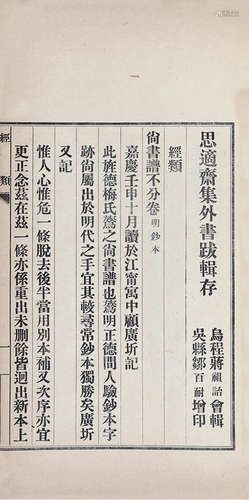 思適齋集外書跋輯存
烏程蔣祖詒會輯
吳縣鄒百耐增印
經類
尚書譜不分卷明鈔本
嘉慶壬申十月讀於江甯寓中顧廣圻記
此旌德梅氏鷟之尚書譜也鷟明正德間人驗鈔本字
跡尚屬出於明代之手宜其較尋常鈔本獨勝矣廣圻
又記
惟人心惟危一條脫去後半當用別本補又次序亦宜
更正念茲在茲一條亦係重出未刪餘皆迥出新本上
經類